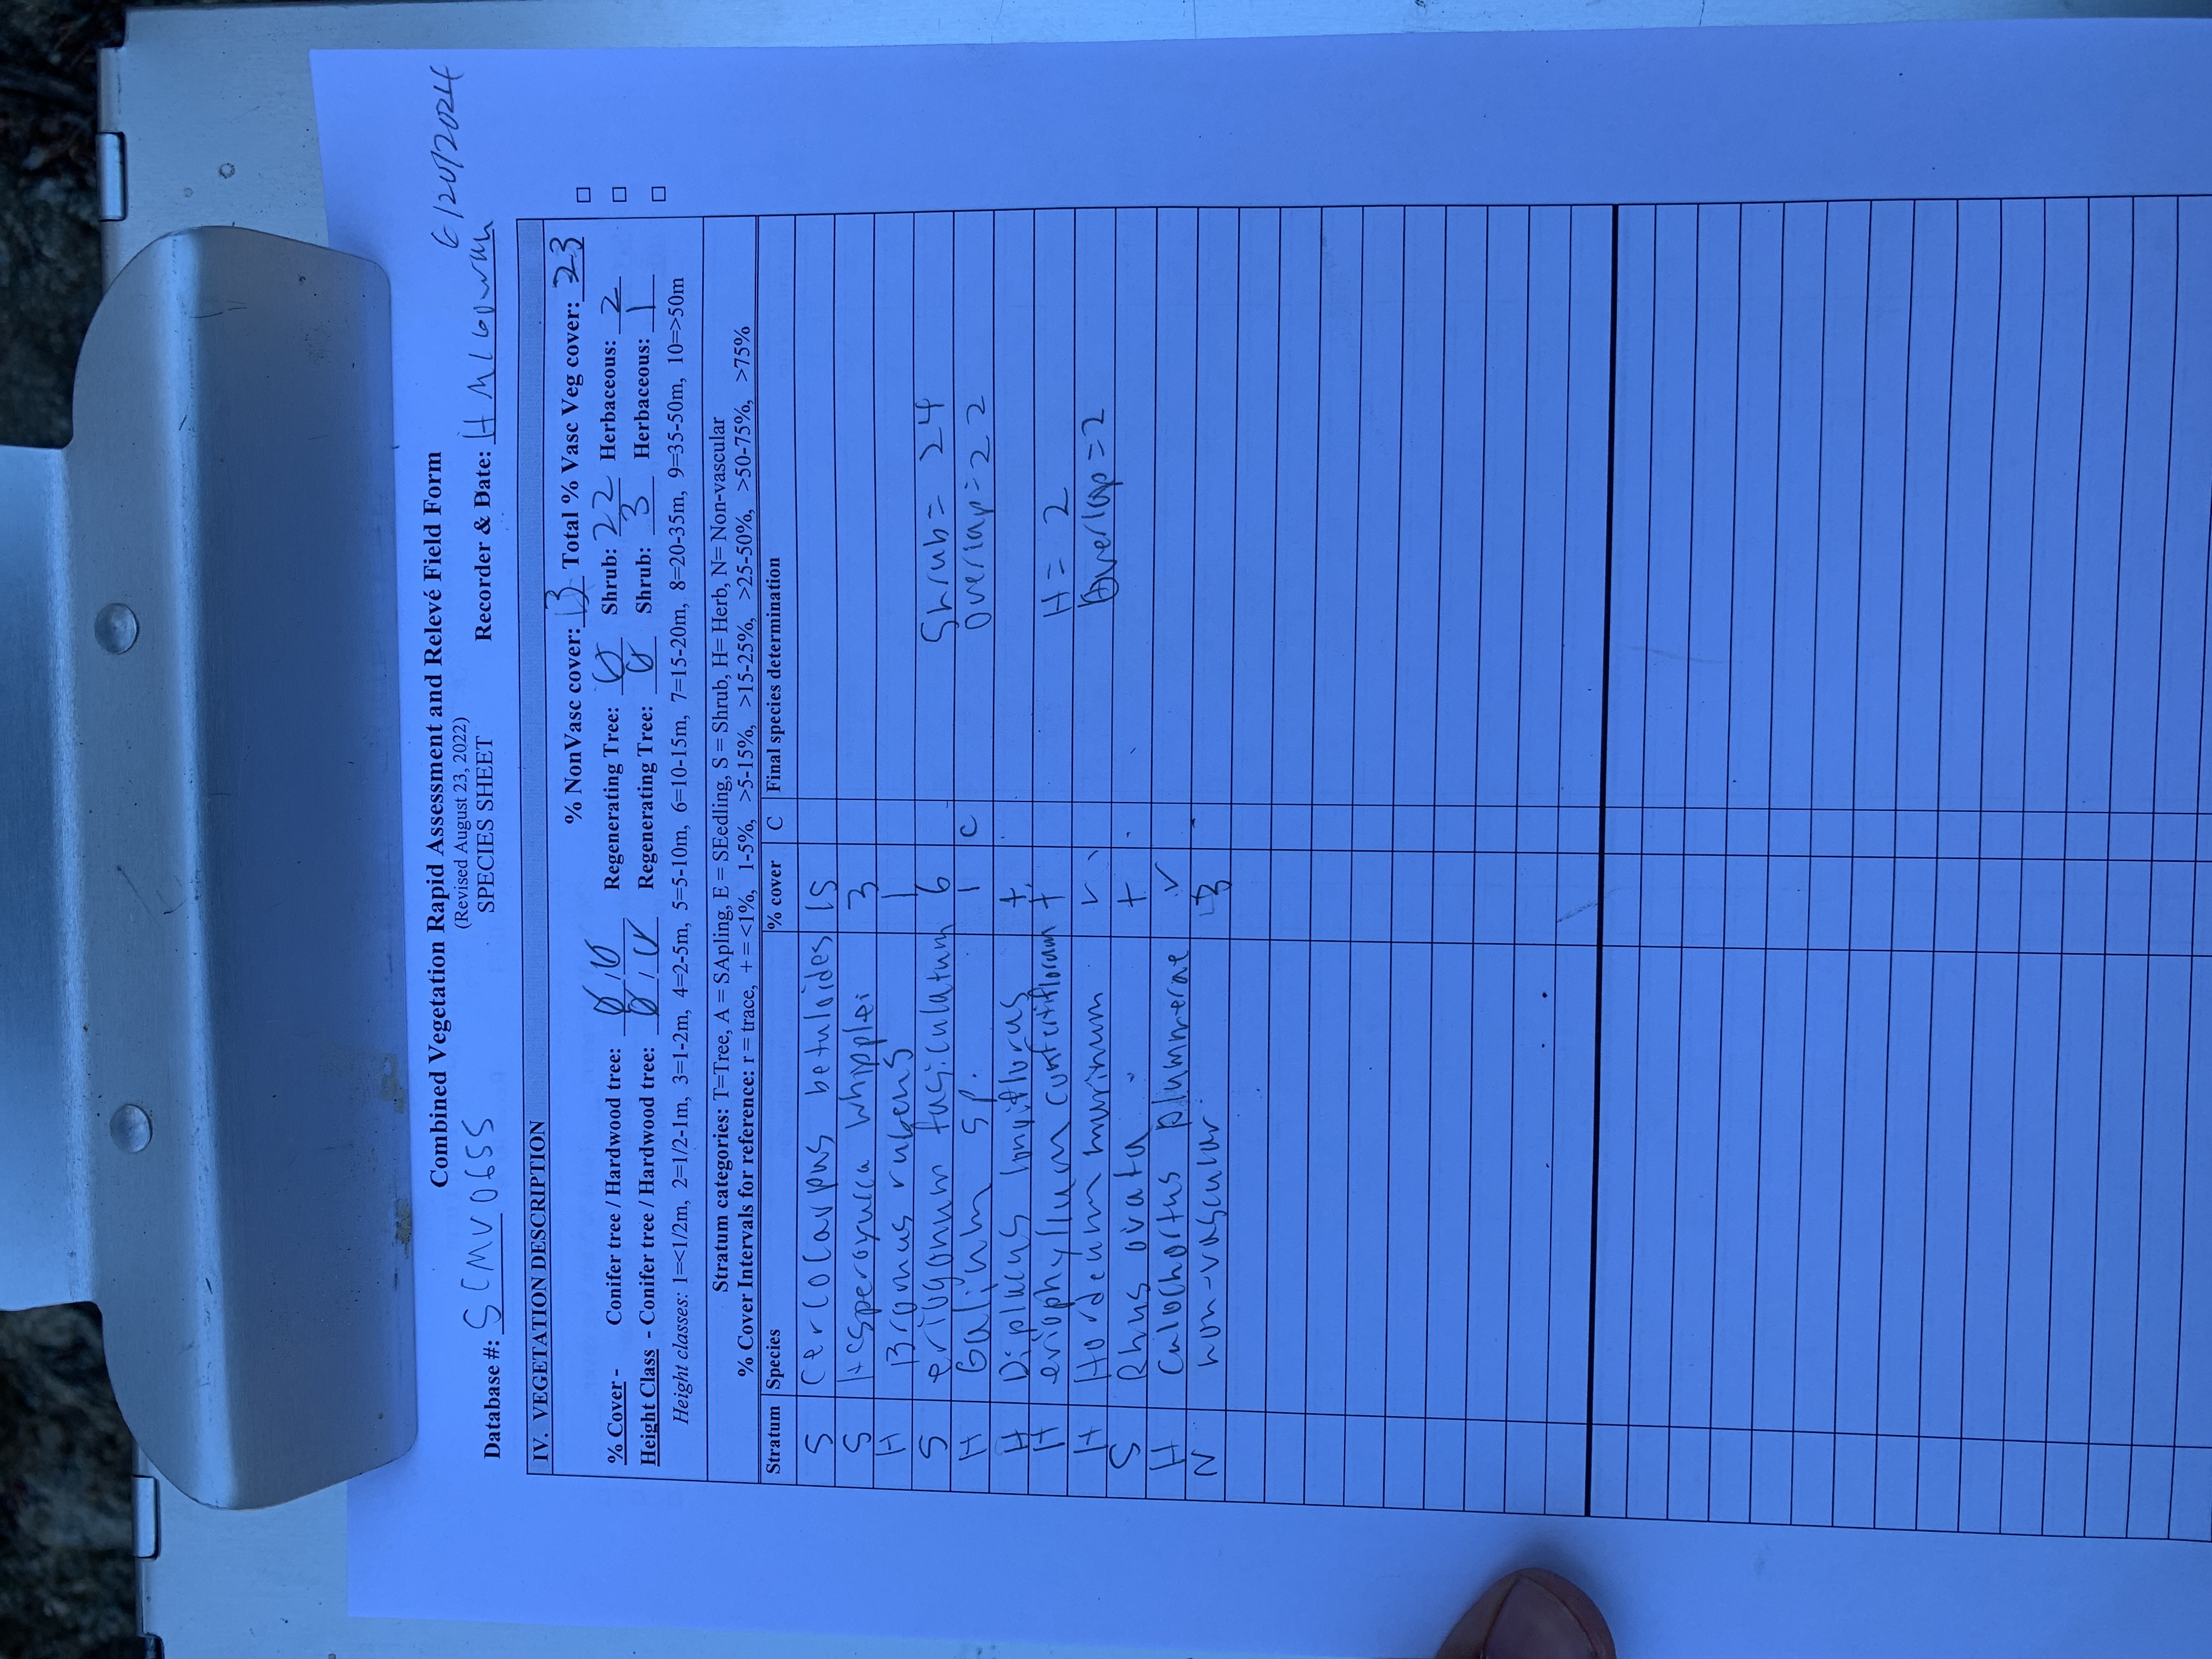 Combined Vegetation Rapid Assessment and Relevé Field Form
(Revised August 23, 2022)
SPECIES SHEET
6/20/2024
Database #: SCMV0655 Recorder & Date: H
IV. VEGETATION DESCRIPTION
% NonVasc cover: 13 Total % Vasc Veg cover: 23
% Cover - Conifer tree / Hardwood tree: 0 / 0 Regenerating Tree: 0 Shrub: 22 Herbaceous: 2
Height Class - Conifer tree / Hardwood tree: 0 / 0 Regenerating Tree: 0 Shrub: 3 Herbaceous: 1
Height classes: 1=<1/2m, 2=1/2-1m, 3=1-2m, 4=2-5m, 5=5-10m, 6=10-15m, 7=15-20m, 8=20-35m, 9=35-50m, 10=>50m
Stratum categories: T=Tree, A = SApling, E = SEedling, S = Shrub, H= Herb, N= Non-vascular
% Cover Intervals for reference: r = trace, + = <1%, 1-5%, >5-15%, >15-25%, >25-50%, >50-75%, >75%
Stratum Species % cover C Final species determination
S Cercocarpus betuloides 15
S Hesperoyucca whipplei 3
H Bromus rubens 1
S eriogonum fasiculatum 6 Shrub = 24
H Galium sp. 1 C overlap = 22
H Diplacus longiflorus +
H eriophyllum confertiflorum + H = 2
H Hordeum murinum r overlap = 2
S Rhus ovata +
H Calochortus plummerae r
N non-vascular 13